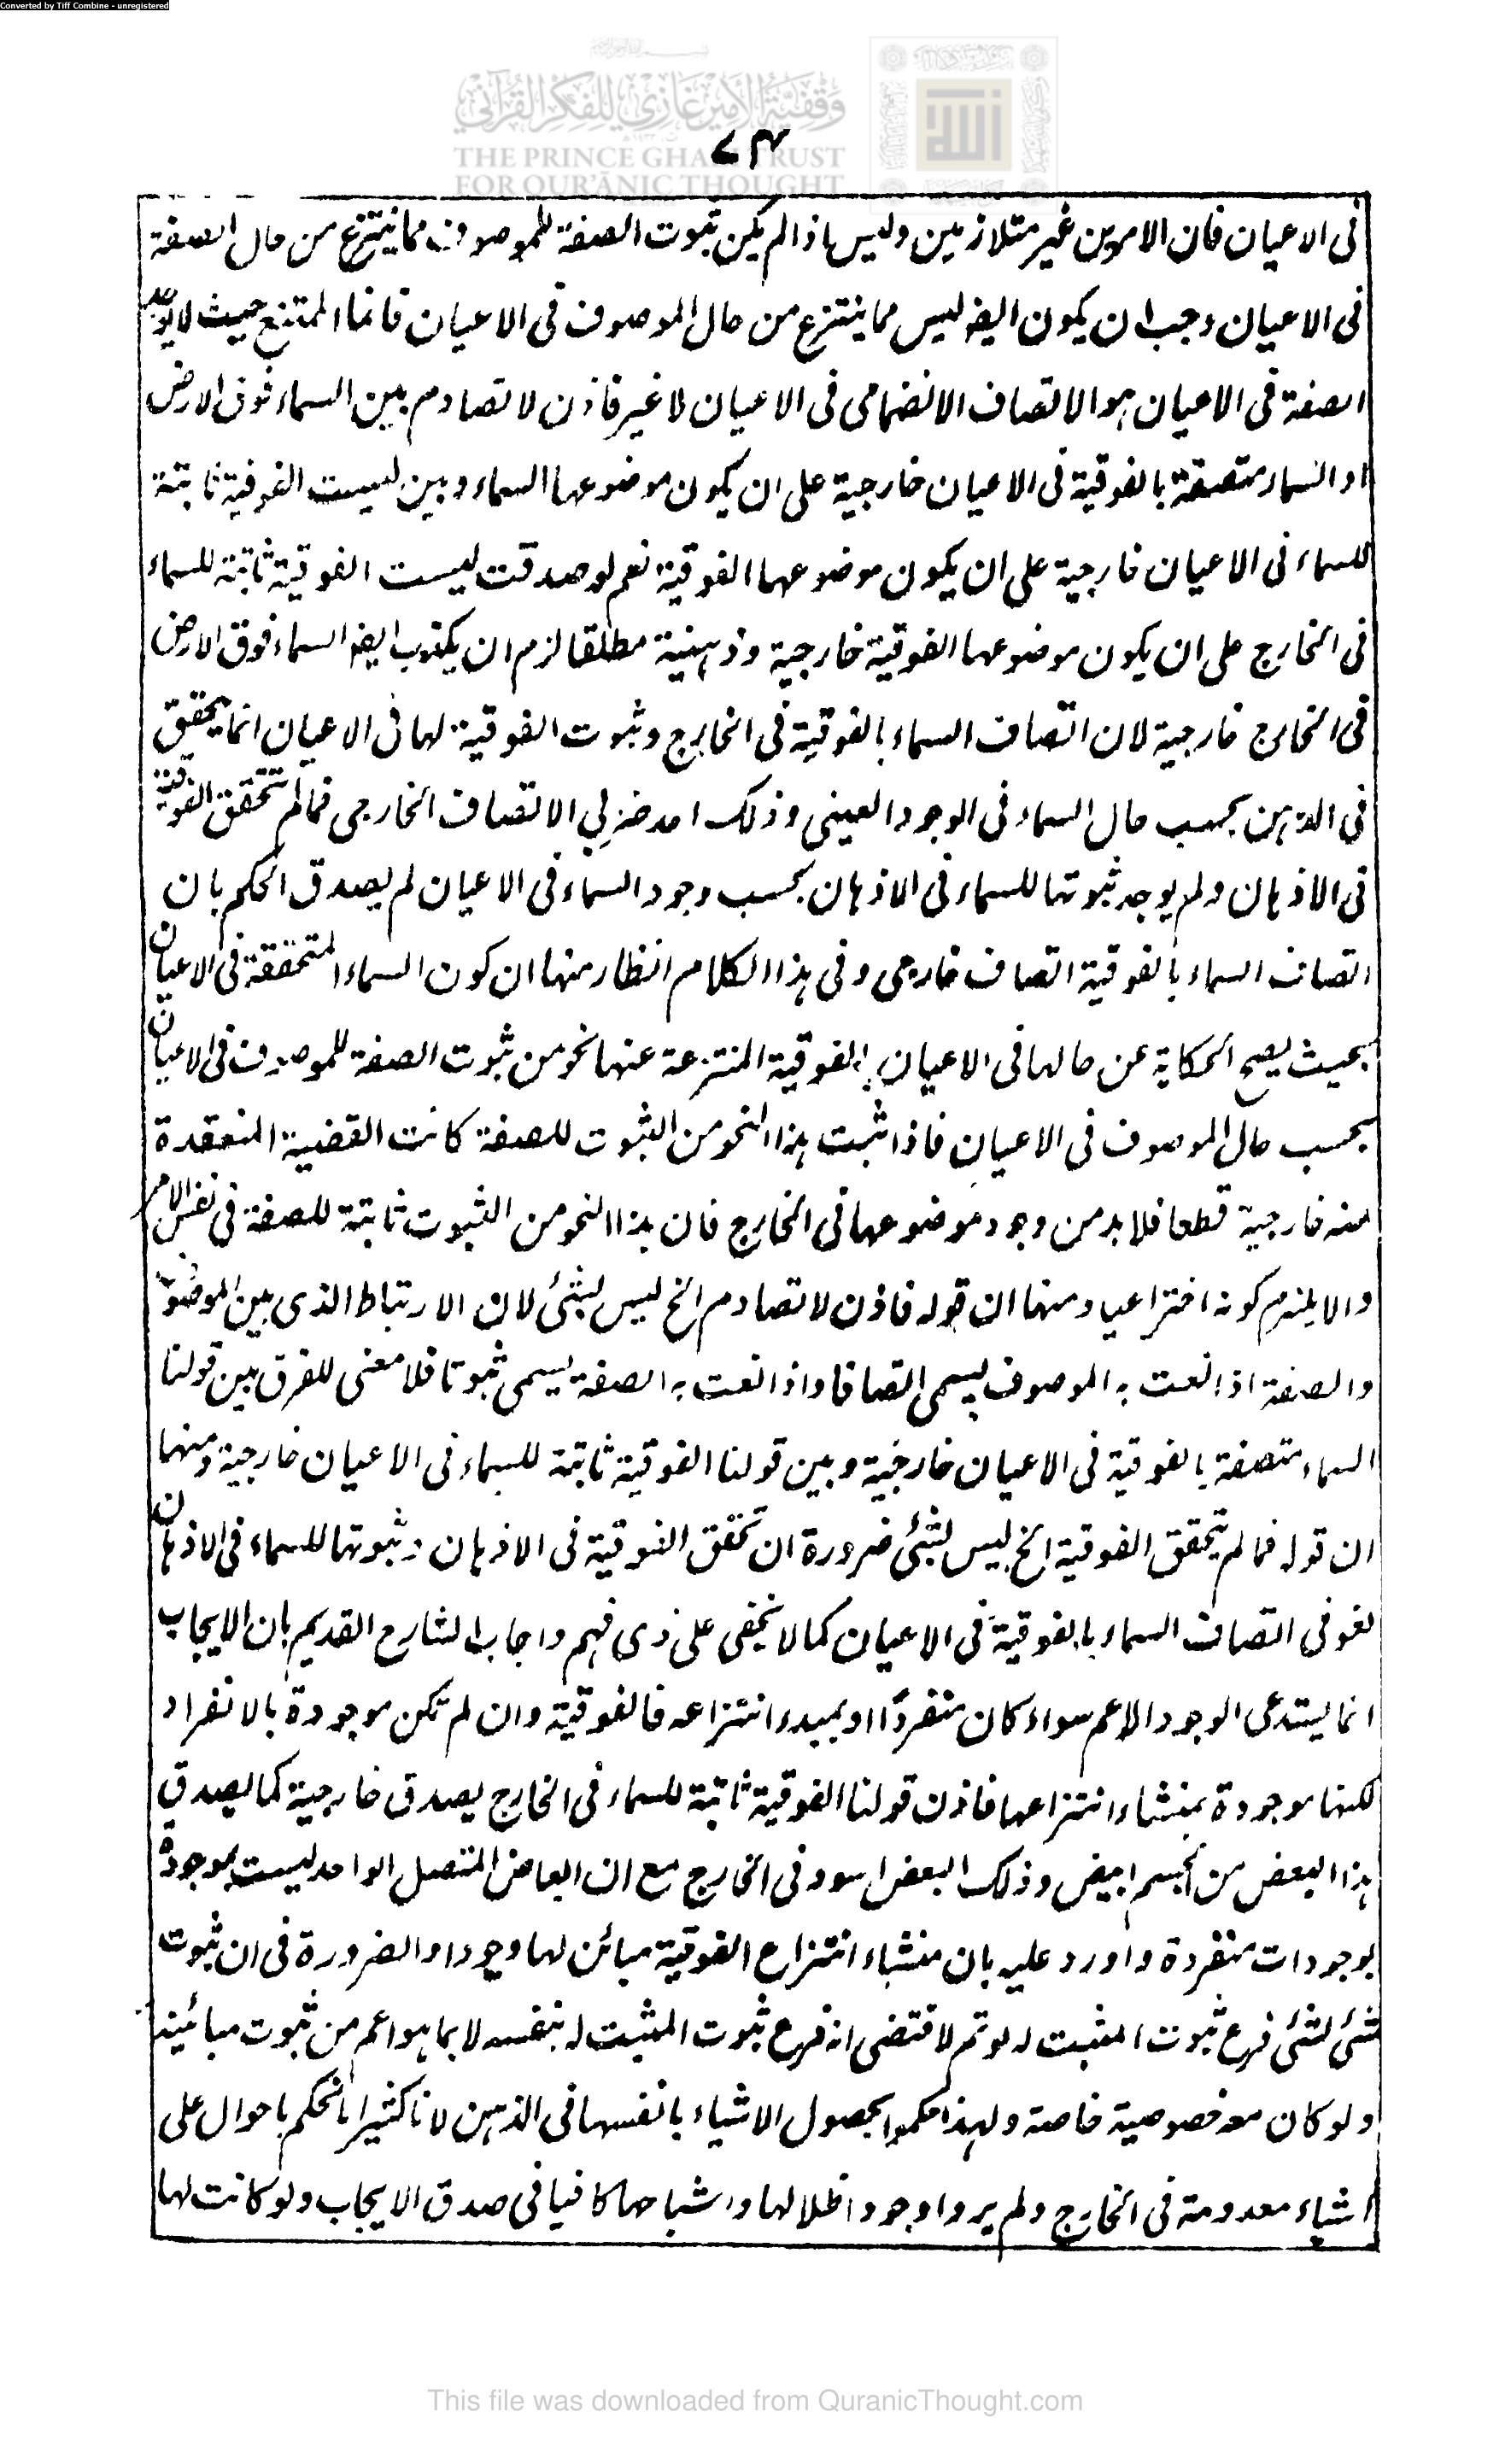 Converted by Tiff Combine - unregistered
وقفية الأمير غازي للفكر القرآني
THE PRINCE GHAZI TRUST
FOR QUR'ĀNIC THOUGHT
٧٤
فى الاعيان فان الامرين غير متلازمين وليس اذا لم يكن ثبوت الصفة للموصوف مما ينتزع من حال الصفة
فى الاعيان وجب ان يكون ايضا ليس مما ينتزع من حال الموصوف فى الاعيان فانما الممتنع حيث لا يوجد
الصفة فى الاعيان هو الاتصاف الانضمامى فى الاعيان لا غير فاذن لا تصادم بين السماء فوق الارض
او السماء متصفة بالفوقية فى الاعيان خارجية على ان يكون موضوعها السماء وبين ليست الفوقية ثابتة
للسماء فى الاعيان خارجية على ان يكون موضوعها الفوقية نعم لو صدقت ليست الفوقية ثابتة للسماء
فى الخارج على ان يكون موضوعها الفوقية خارجية وذهنية مطلقا لزم ان يكذب ايضا السماء فوق الارض
فى الخارج خارجية لان اتصاف السماء بالفوقية فى الخارج وثبوت الفوقية لها فى الاعيان انما يتحقق
فى الذهن بحسب حال السماء فى الوجود العينى وذلك احد ضربى الاتصاف الخارجى فما لم تتحقق الفوقية
فى الاذهان ولم يوجد ثبوتها للسماء فى الاذهان بحسب وجود السماء فى الاعيان لم يصدق الحكم بان
اتصاف السماء بالفوقية اتصاف خارجى وفى هذا الكلام انظار منها ان كون السماء المتحققة فى الاعيان
بحيث يصح الحكاية عن حالها فى الاعيان بالفوقية المنتزعة عنها نحو من ثبوت الصفة للموصوف فى الاعيان
بحسب حال الموصوف فى الاعيان فاذا ثبت هذا النحو من الثبوت للصفة كانت القضية المنعقدة
منه خارجية قطعا فلا بد من وجود موضوعها فى الخارج فان هذا النحو من الثبوت ثابتة للصفة فى نفس الامر
والا يلزم كونه اختراعيا ومنها ان قوله فاذن لا تصادم الخ ليس بشئ لان الارتباط الذى بين الموصوف
والصفة اذا نعت به الموصوف يسمى اتصافا واذا نعت به الصفة يسمى ثبوتا فلا معنى للفرق بين قولنا
السماء متصفة بالفوقية فى الاعيان خارجية وبين قولنا الفوقية ثابتة للسماء فى الاعيان خارجية ومنها
ان قوله فما لم يتحقق الفوقية الخ ليس بشئ ضرورة ان تحقق الفوقية فى الاذهان وثبوتها للسماء فى الاذهان
لغو فى اتصاف السماء بالفوقية فى الاعيان كما لا يخفى على ذى فهم واجاب الشارح القديم بان الايجاب
انما يستدعى الوجود الاعم سواء كان منفردًا او بمبدء انتزاعه فالفوقية وان لم تكن موجودة بالانفراد
لكنها موجودة بمنشاء انتزاعها فاذن قولنا الفوقية ثابتة للسماء فى الخارج يصدق خارجية كما يصدق
هذا البعض من الجسم ابيض وذلك البعض اسود فى الخارج مع ان ابعاض المتصل الواحد ليست بموجودة
بوجودات منفردة واورد عليه بان منشاء انتزاع الفوقية مبائن لها وجودا والضرورة فى ان ثبوت
شئ لشئ فرع ثبوت المثبت له لو تم لاقتضى انه فرع ثبوت المثبت له بنفسه لا بما هو اعم من ثبوت مبائينه
ولو كان معه خصوصية خاصة ولهذا حكموا بحصول الاشياء بانفسها فى الذهن لانا كثيرا ما نحكم باحوال على
اشياء معدومة فى الخارج ولم يروا وجود اظلالها واشباحها كافيا فى صدق الايجاب ولو كانت لها
This file was downloaded from QuranicThought.com